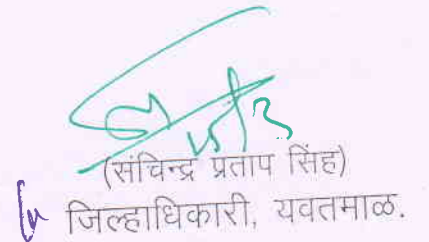 (संचिन्द्र प्रताप सिंह)
जिल्हाधिकारी, यवतमाळ.